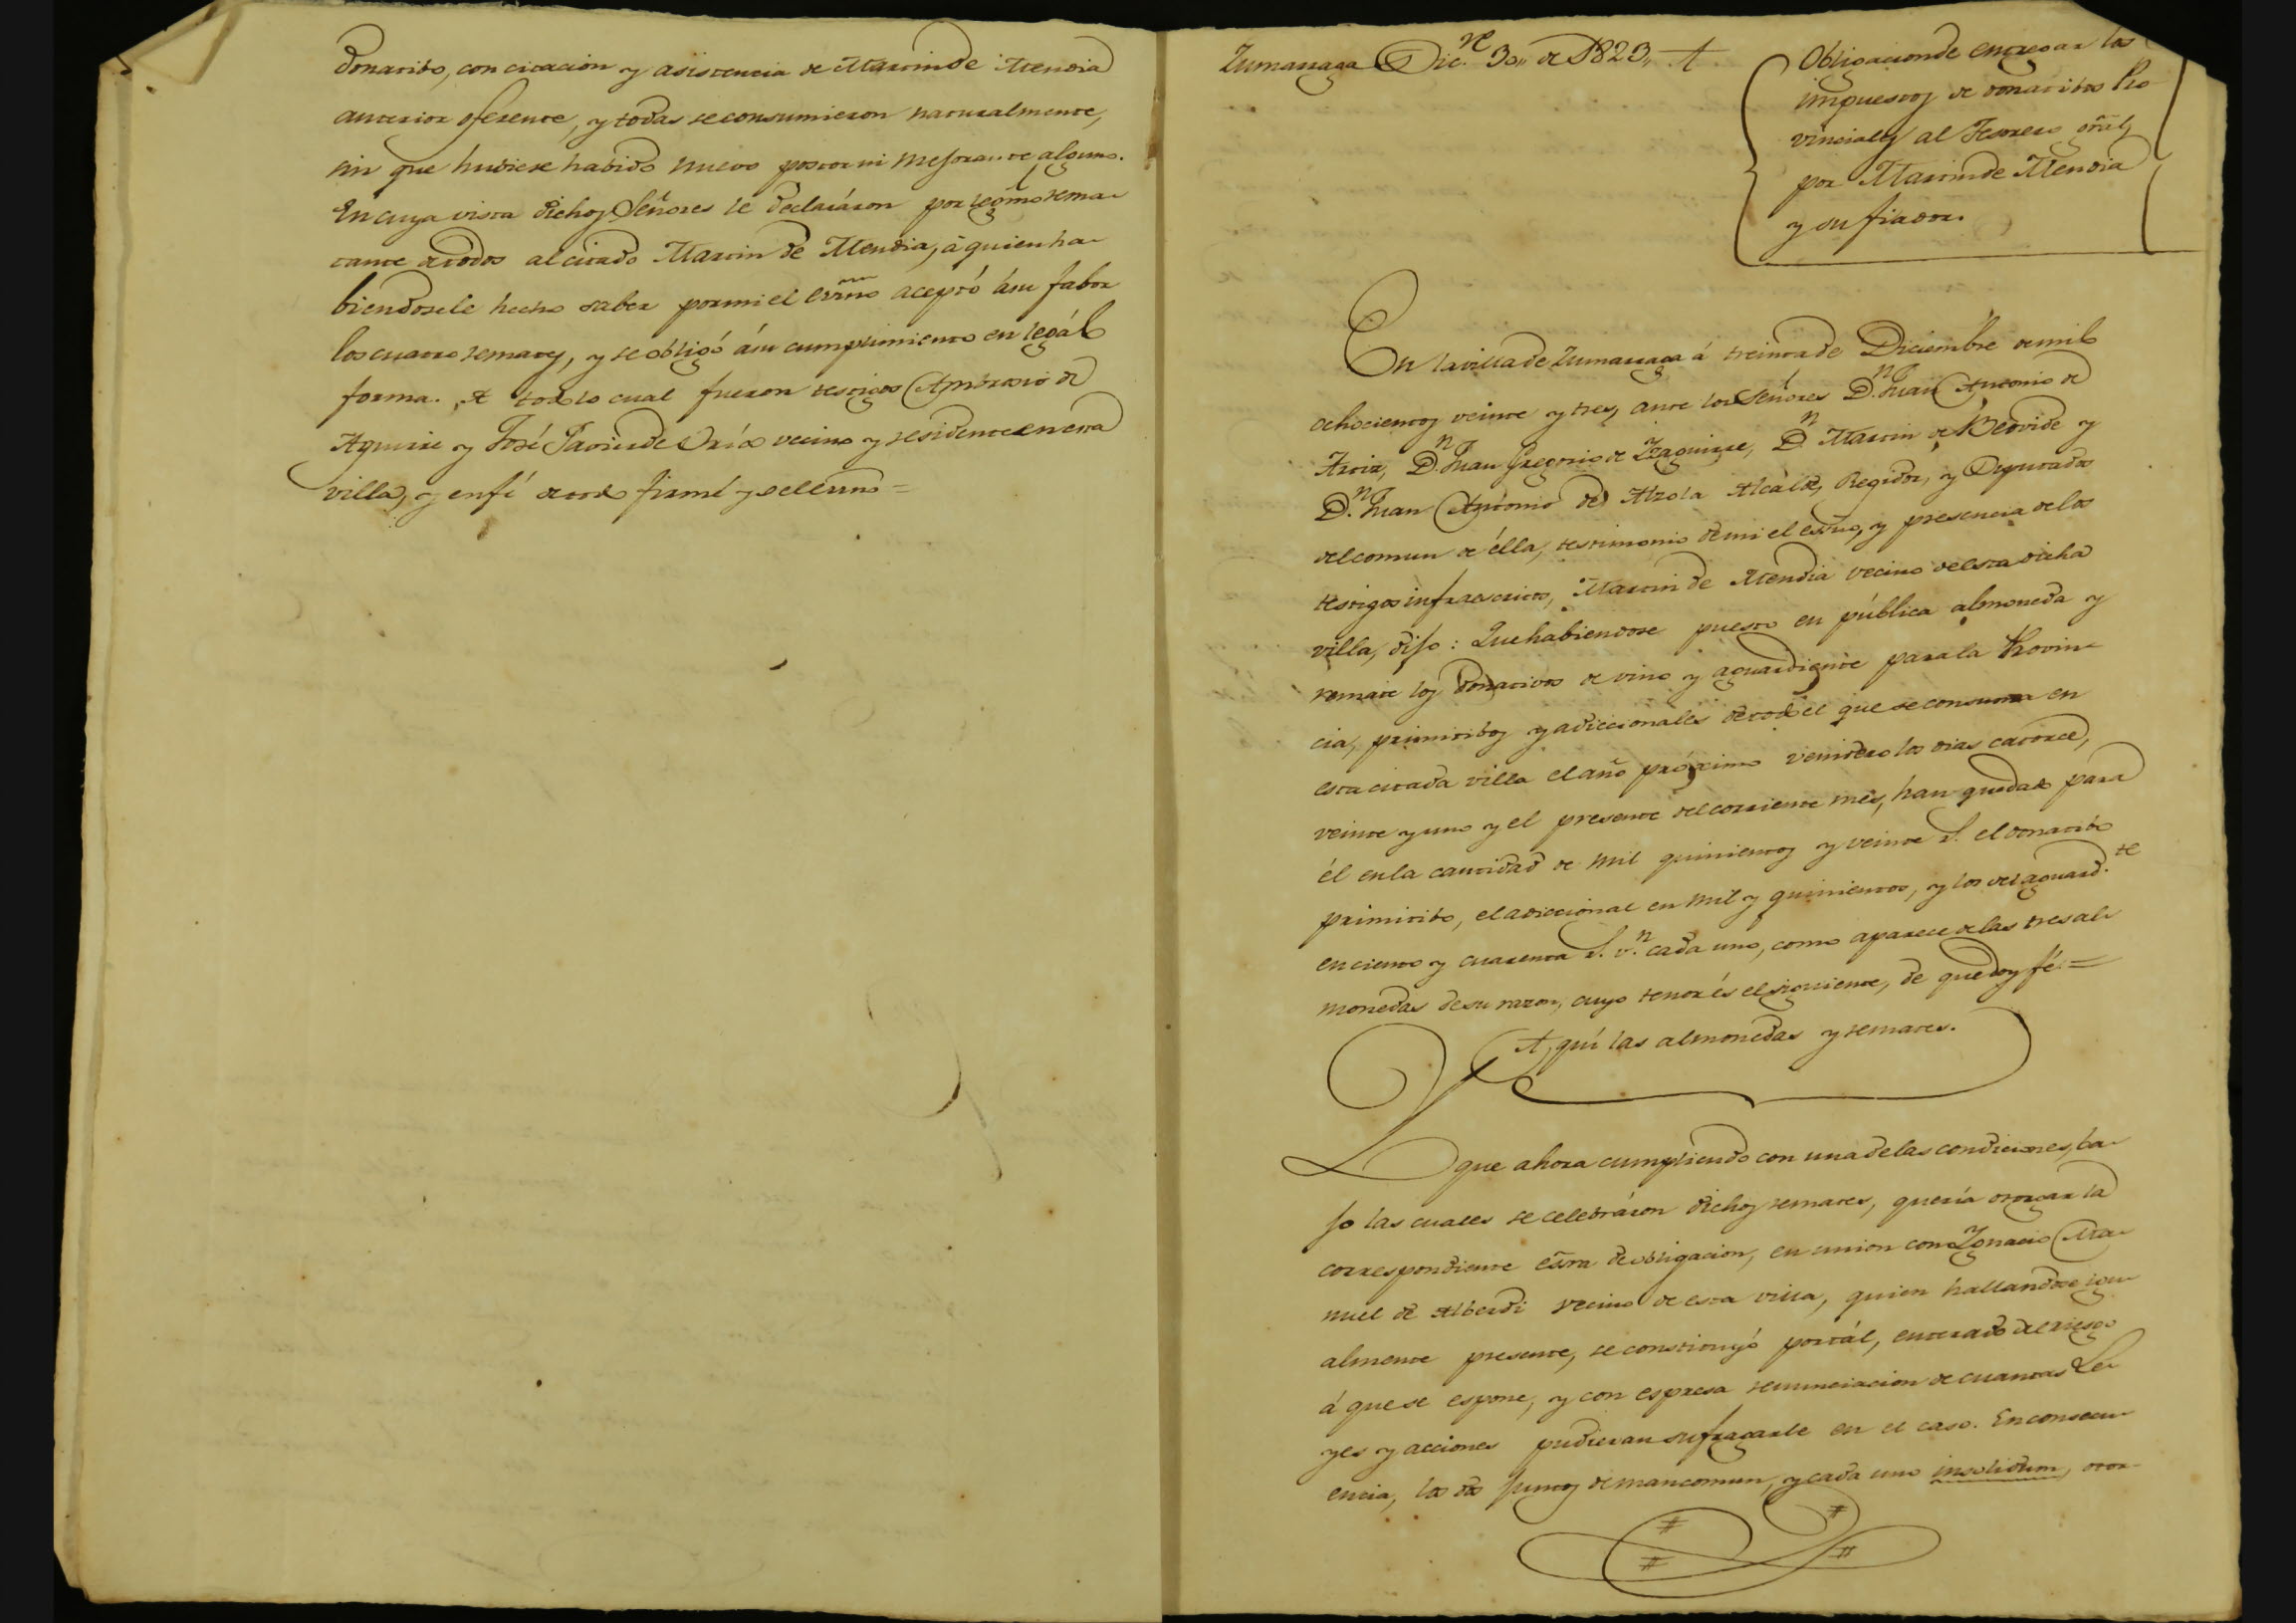 donatibo, con citacion y asistencia de Martin de Mendia
anterior oferente, y todas se consumieron naturalmente,
sin que hubiere habido nuevo postor ni mejorante alguno.
En cuya vista dichos Señores le declaráron por legmo rema-
tante de todos al citado Martin de Mendia, á quien ha-
biendosele hecho saber por mi el essno aceptó á su fabor
los cuatro remates, y se obligó á su cumplimiento en legál
forma. A todo lo cual fueron testigos Ambrosio de
Aguirre y José Javier de Oria vecino y residente en esta
villa, y en fé de todo firmé yo el essno =
Zumarraga Dic.re 30,, de 1823,, A.
Obligacion de entregar los
impuestos de donatibos Pro
vinciales al Tesorero gral,
por Martin de Mendia
y su fiador.
En la villa de Zumarraga á treinta de Diciembre de mil
ochocientos veinte y tres, ante los Señores D.n Juan Antonio de
Arriz, D.n Juan Gregorio de Yzaguirre, D.n Martin de Beovide y
D.n Juan Antonio de Alzola Alcalde, Regidor, y Diputados
del comun de élla, testimonio de mi el essno, y presencia de los
testigos infraescritos, Martin de Mendia vecino de esta dicha
villa, dijo: Que habiendose puesto en pública almoneda y
remate los donativos de vino y aguardiente para la Provin-
cia, primitibos y adiccionales de todo el que se consuma en
esta citada villa el año próximo venidero los dias catorce,
veinte y uno y el presente del corriente mes, han quedado para
él en la cantidad de mil quinientos y veinte r.s el donatibo
primitibo, el adiccional en mil y quinientos, y los del aguard.te
en ciento y cuarenta r.s v.n cada uno, como aparece de las tres al-
monedas de su razon, cuyo tenor és el siguiente, de que doy fé =
Aquí las almonedas y remates.
Y que ahora cumpliendo con una de las condiciones, ba-
jo las cuales se celebráron dichos remates, quería otorgar la
correspondiente essra de obligacion, en union con Ygnacio Ma-
nuel de Alberdi vecino de esta villa, quien hallandose igu-
almente presente, se constituyó por tál, enterado del riesgo
á que se espone, y con espresa renunciacion de cuantas Le-
yes y acciones pudieran sufragarle en el caso. En consecu-
encia, los dos juntos de mancomun, y cada uno insolidum, otor-